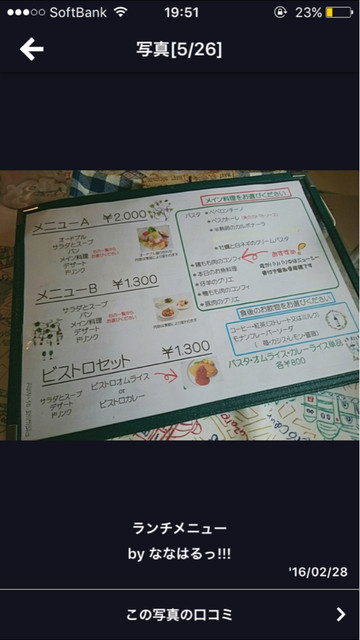 SoftBank 19:51 23%
写真[5/26]
メニューA ¥2,000
オードブル
サラダとスープ
パン
メイン料理
デザート
ドリンク
メニューB ¥1,300
サラダとスープ
パン
メイン料理
デザート
ドリンク
ビストロセット ¥1,300
サラダとスープ
デザート
ドリンク
ビストロオムライス
or
ビストロカレー
メイン料理をお選びください
パスタ
・ペペロンチーノ
・牡蠣と白ネギのクリームパスタ
・鶏もも肉のコンフィ
・本日のお魚料理
・仔羊のグリエ
・鴨もも肉のコンフィ
・豚肉のグリエ
おすすめ
食後のお飲物をお選びください
コーヒー・紅茶(ストレート又はミルク)
パスタ・オムライス・カレーライス単品
各¥800
ランチメニュー
by ななはるっ!!!
'16/02/28
この写真の口コミ